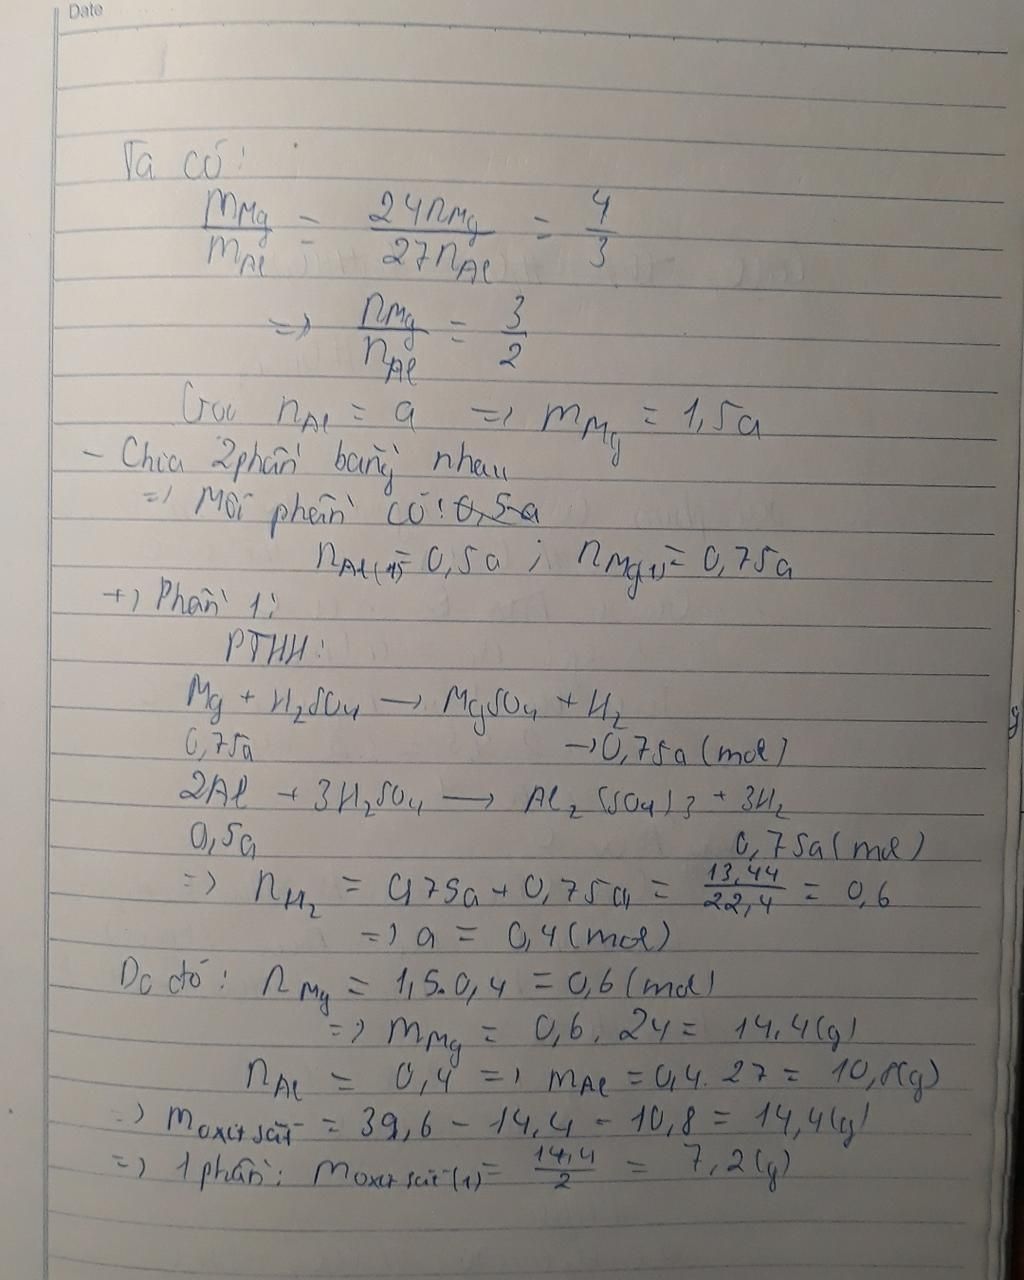 Date
Ta có:
mMg/mAl = 24nMg/27nAl = 4/3
=> nMg/nAl = 3/2
Gọi nAl = a => mMg = 1,5a
- Chia 2 phần bằng nhau
=> Mỗi phần có: 0,5a
nAl(1) = 0,5a ; nMg(1) = 0,75a
+) Phần 1:
PTHH:
Mg + H2SO4 → MgSO4 + H2
0,75a → 0,75a (mol)
2Al + 3H2SO4 → Al2(SO4)3 + 3H2
0,5a 0,75a (mol)
=> nH2 = 0,75a + 0,75a = 13,44/22,4 = 0,6
=> a = 0,4 (mol)
Do đó: nMg = 1,5.0,4 = 0,6 (mol)
=> mMg = 0,6. 24 = 14,4 (g)
nAl = 0,4 => mAl = 0,4. 27 = 10,8 (g)
=> moxit sắt = 39,6 - 14,4 - 10,8 = 14,4 (g)
=> 1 phần: moxit sắt (1) = 14,4/2 = 7,2 (g)